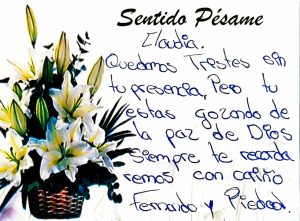 Sentido Pésame
Claudia.
Quedamos Trestes sin
tu presencia, Pero tu
estas gozando de
la paz de Dios
siempre te recorda
remos con cariño
Fernando y Piedad.